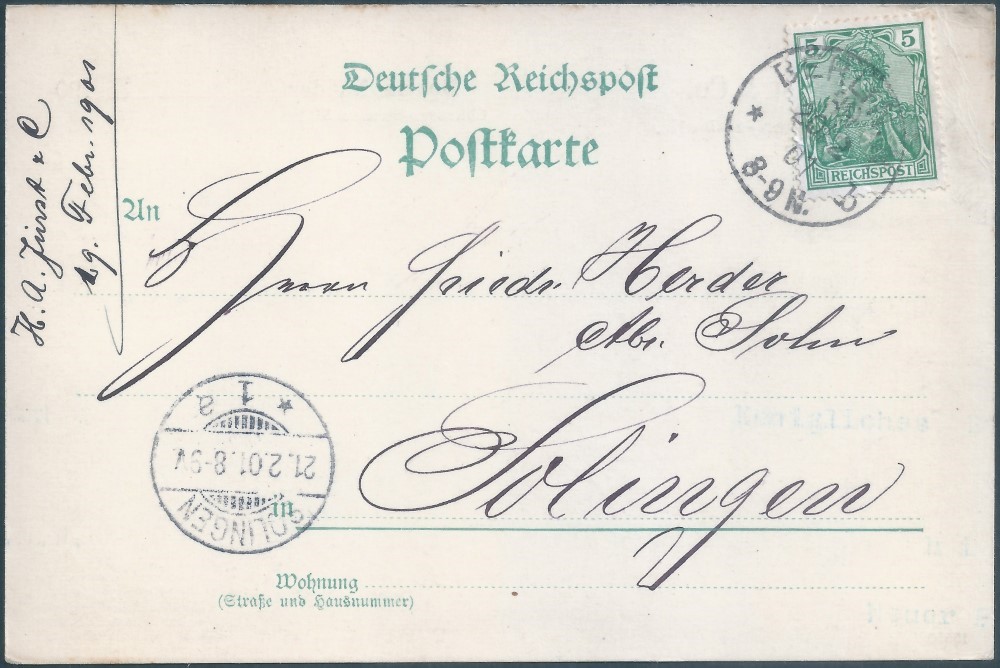 Deutsche Reichspost
Postkarte
5 5
REICHSPOST
8-9 N.
H. A. Jürst & C
Febr. 1901
An
Herrn Friedr. Herder
Abr. Sohn
in Solingen
1 a
21.2.01.8-9V.
SOLINGEN
Wohnung
(Straße und Hausnummer)